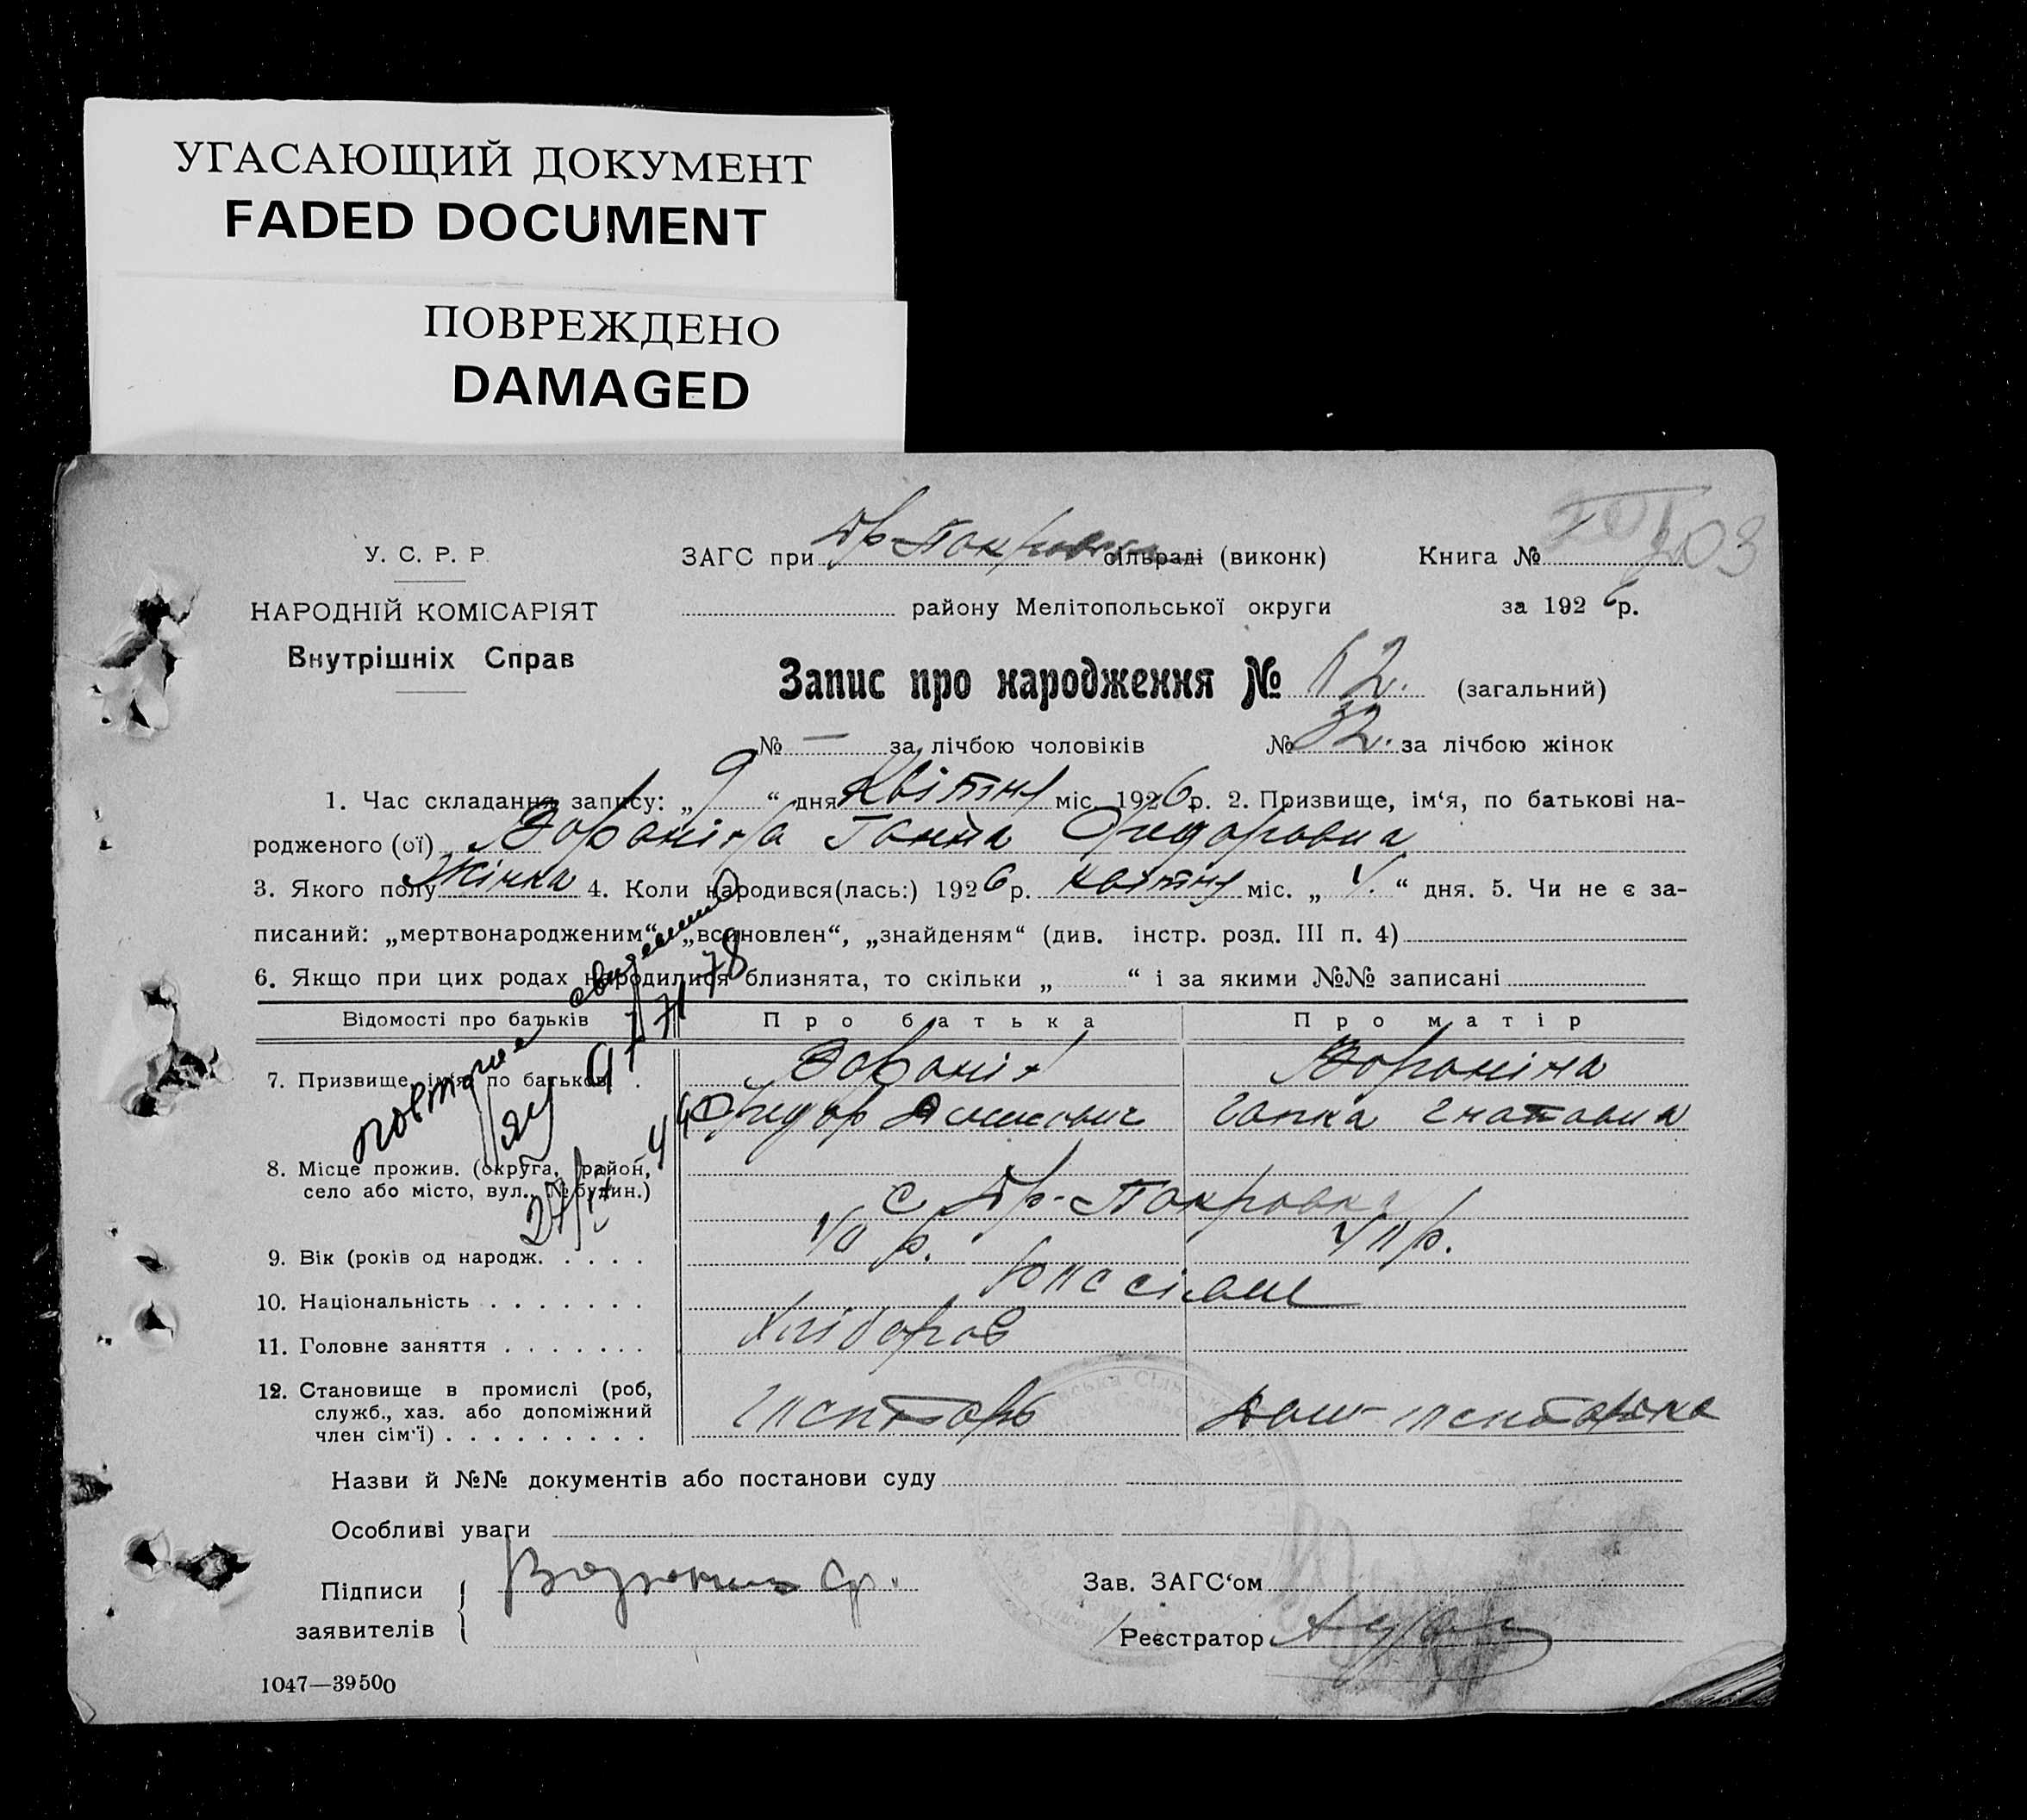 УГАСАЮЩИЙ ДОКУМЕНТ
FADED DOCUMENT
ПОВРЕЖДЕНО
DAMAGED
203
У. С. Р. Р.
ЗАГС при Др-Покровська сільраді (виконк) Книга №
НАРОДНІЙ КОМІСАРІЯТ
району Мелітопольської округи за 1926 р.
Внутрішніх Справ
Запис про народження № 12. (загальний)
№ — за лічбою чоловіків № 32. за лічбою жінок
1. Час складання запису: „9“ дня Квітня міс. 1926 р. 2. Призвище, ім‘я, по батькові на-
родженого (ої) Вороніна Ганна Фидоровна
3. Якого полу Жінка 4. Коли народився(лась:) 1926 р. квітня міс. „ “ дня. 5. Чи не є за-
писаний: „мертвонародженим“ „всиновлен“, „знайденям“ (див. інстр. розд. III п. 4)
6. Якщо при цих родах народилися близнята, то скільки „ “ і за якими №№ записані
Відомості про батьків Про батька Про матір
7. Призвище, ім‘я, по батькові . Воронін Вороніна
Фидор Гапка Гнатовна
повторне
8. Місце прожив. (округа, район,
село або місто, вул., № будин.)
с Др-Покровка
9. Вік (років од народж. . . . . 40 р. р.
10. Національність . . . . . . .
11. Головне заняття . . . . . . . Хлібороб
12. Становище в промислі (роб,
служб., хаз. або допоміжний
член сім‘ї) . . . . . . . . .
Назви й №№ документів або постанови суду
Особливі уваги
Підписи
заявителів
Зав. ЗАГС‘ом
Реєстратор
1047—39500